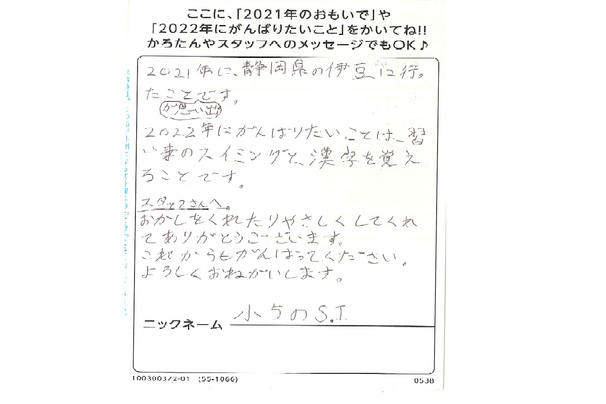 ここに、「2021年のおもいで」や
「2022年にがんばりたいこと」をかいてね!!
かろたんやスタッフへのメッセージでもOK♪
2021年に、静岡県の伊豆に行っ
たことです。
が思い出
2022年にがんばりたいことは、習
い事のスイミングと、漢字を覚え
ることです。
スタッフさんへ。
おかしをくれたりやさしくしてくれ
てありがとうございます。
これからもがんばってください。
よろしくおねがいします。
ニックネーム 小5のS.T.
100300372-01 (55-1066) 0538